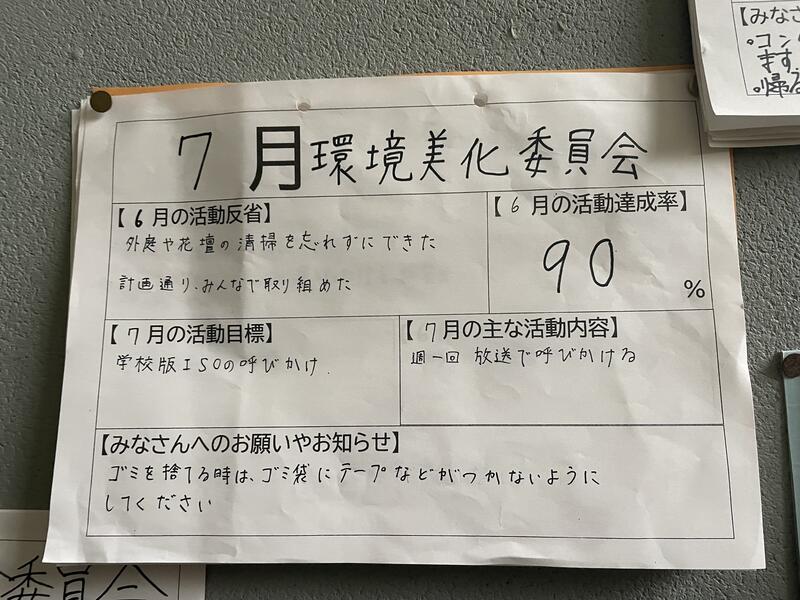 7月環境美化委員会
【6月の活動反省】
外庭や花壇の清掃を忘れずにできた
計画通り、みんなで取り組めた
【6月の活動達成率】
90
%
【7月の活動目標】
学校版ISOの呼びかけ
【7月の主な活動内容】
週一回 放送で呼びかける
【みなさんへのお願いやお知らせ】
ゴミを捨てる時は、ゴミ袋にテープなどがつかないように
してください
【みなさ
。コン
ます
。帰
委員会